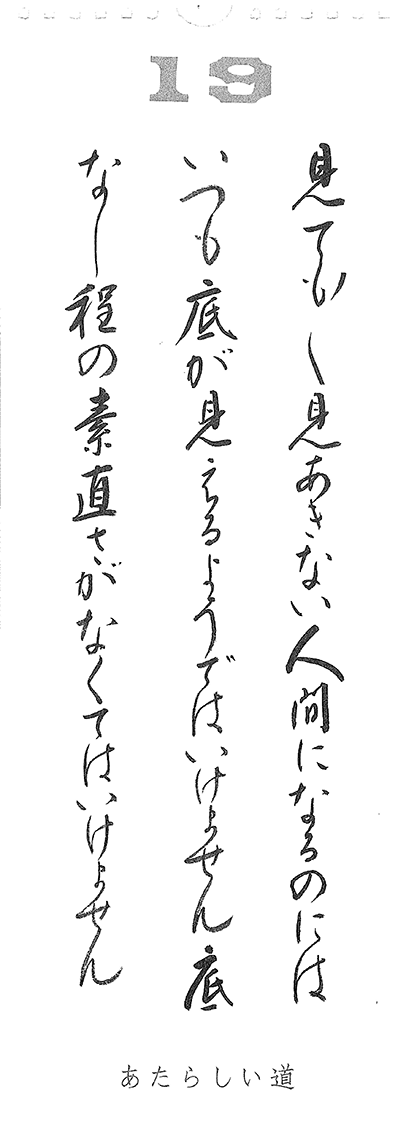 19
見ても〱見あきない人間になるのには
いつも底が見えるようではいけません底
なし程の素直さがなくてはいけません
あたらしい道